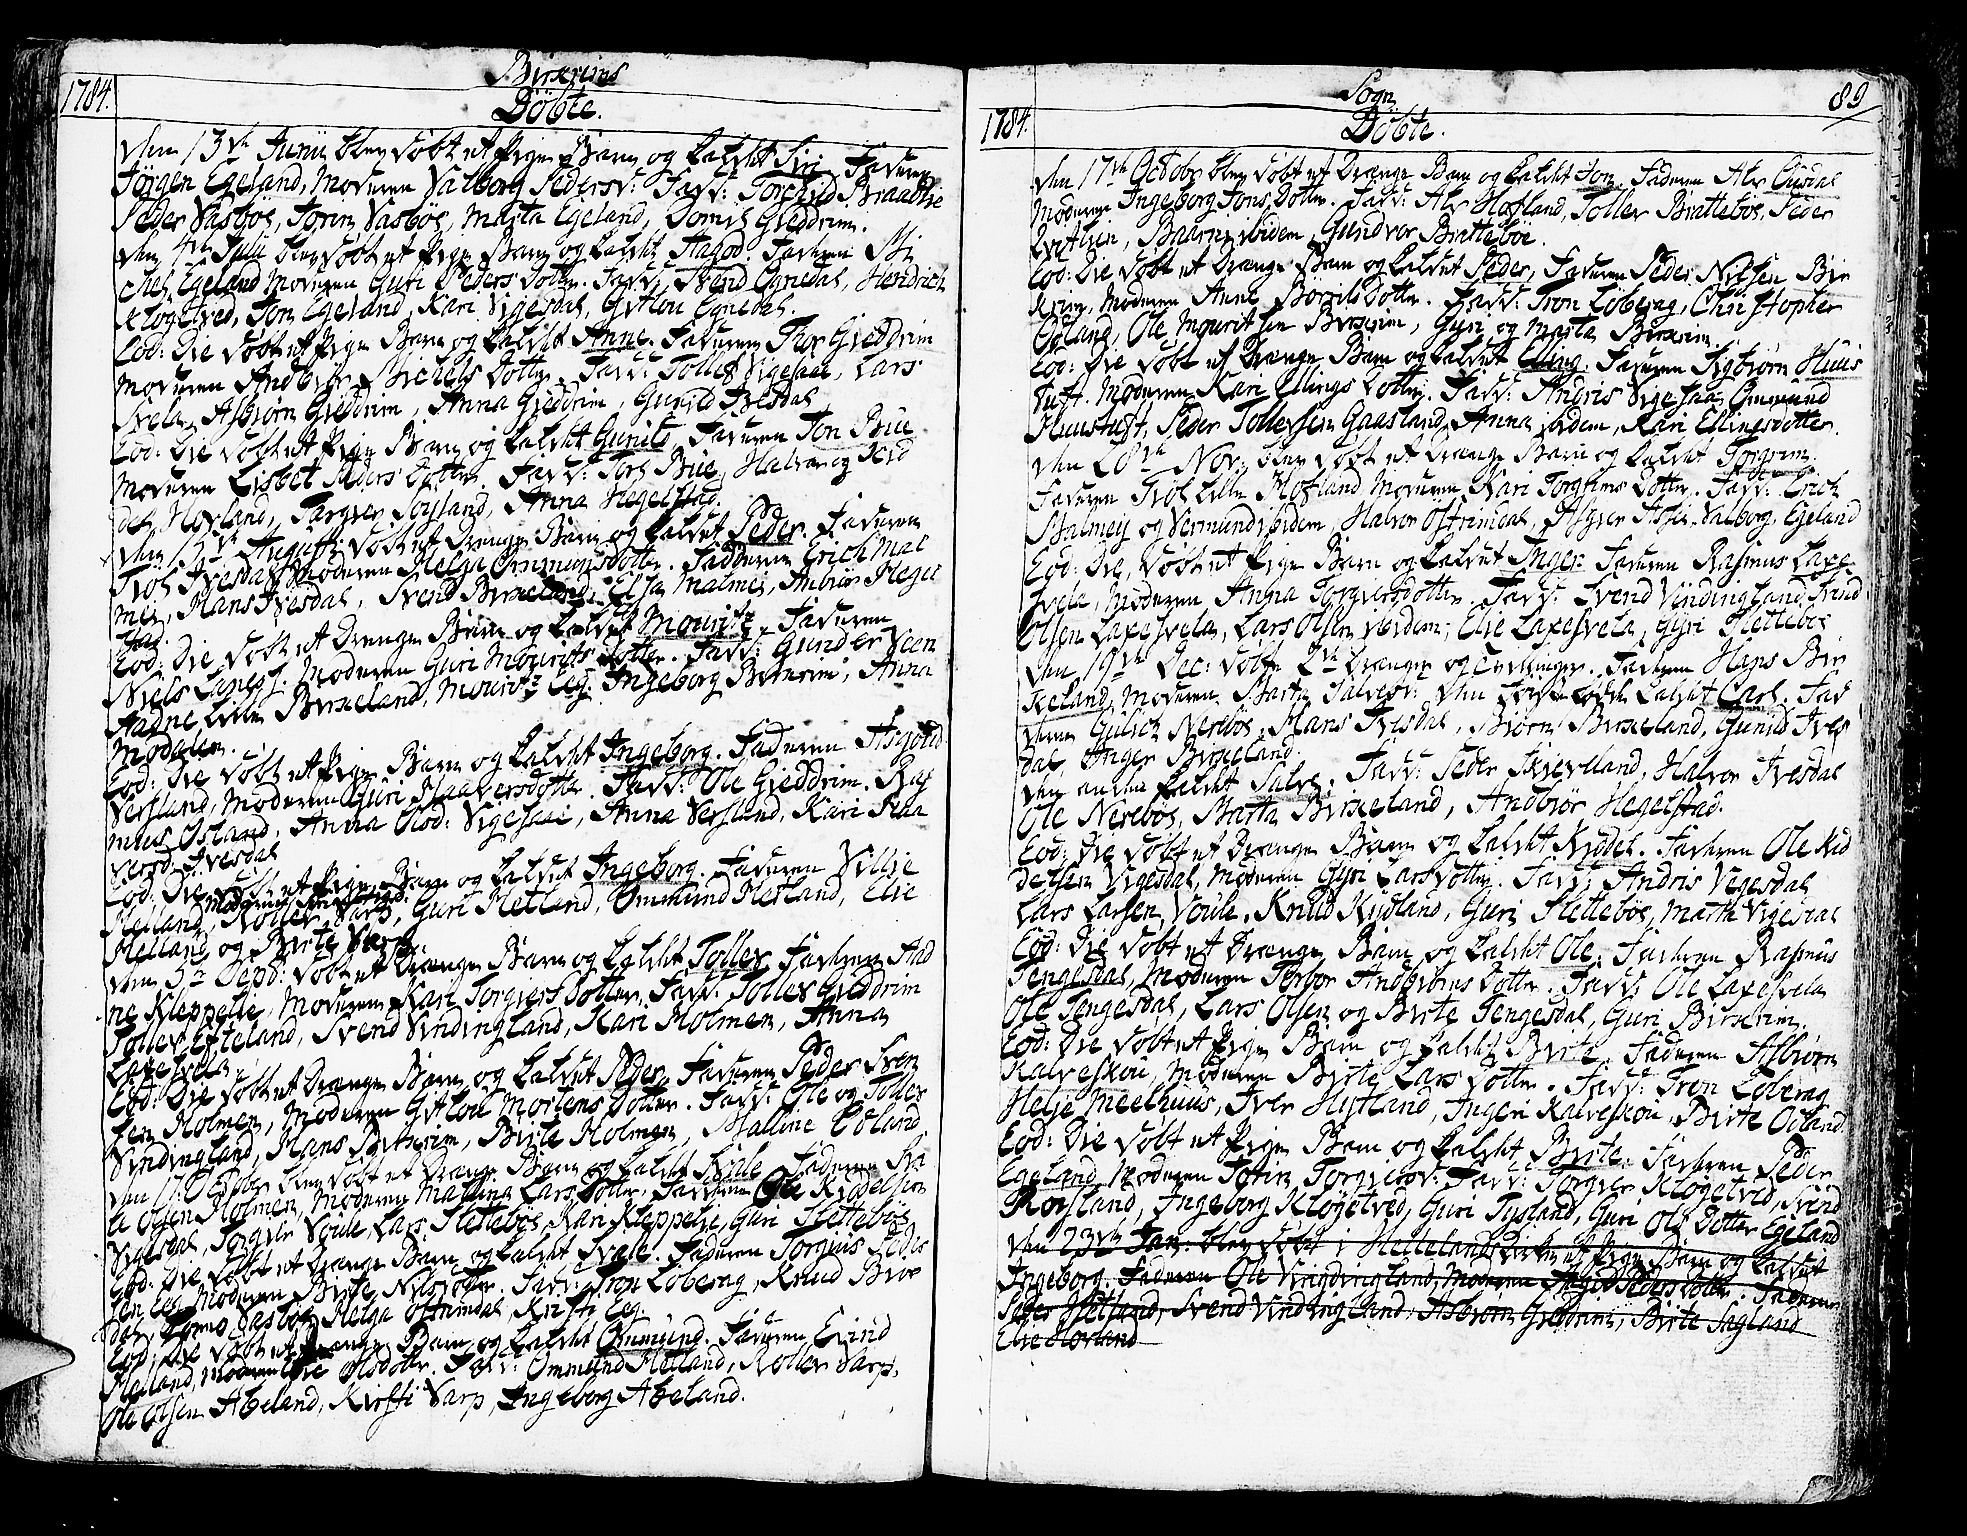 Birkreims
1784.
Döbte.
den 13de Junii blev döbt et Pige Barn og kaldet Siri Faderen
Jörgen Egeland, Moderen Valborg Pedersd: Fadd: Torchild Braadlie
Peder Vasböe, Torin Vasböe, Marta Egeland, Giedrem.
den 4de Julii blev döbt et Pige Barn og kaldet Aagod. Faderen Mi
chel Egeland Moderen Guri Peders dotter. Fadd: Svend Egnedal, Hendrich
Klogetved, Jon Egeland, Kari Vigesdal, Gitlou Egnedal.
Eod: Die döbt et Pige Barn og kaldet Anne. Faderen Thor Gieddrim
Moderen Andbiör Michels dotter. Fadd: Tollef Vigesaae, Lars
Svela, Asbiörn Gieddrim, Anna Gieddrim, Gunild Ivesdal
Eod: Die döbt et Pige Barn og kaldet Gunild, Faderen Jon Bue
Moderen Lisbet Peders dotter. Fadd: Bue, Halvar og
Hovland, Torgier Soyland, Anna Hegelstad.
den August: döbt et Drenge Barn og kaldet Peder. Faderen
Ivesdal Moderen Helga Ommundsdotter. Fadderne Erich Mal
mei, Hans Ivesdal, Svend Birkeland, Elsa Malmei, Anbiör Hegel
stad.
Eod: Die döbt et Drenge Barn og kaldet Mouritz. Faderen
Niels Moderen Guri Mourits dotter. Fadd: Gunder Veen
Aadne Lille Birkeland, Mouritz Eeg. Ingeborg Birkrim, Anna
Modalen.
Eod: Die döbt et Pige Barn og kaldet Ingeborg. Faderen Asgoud
Versland, Moderen Guri Haaversdotter. Fadd: Ole Gieddrim. Ras
mus Osland, Anna Vigesaae, Anna Versland, Kari
Ivesdal
Eod: Die döbt et Pige Barn og kaldet Ingeborg. Faderen Villie
Helland, Roller Varp, Guri Hetland, Ommund Hetland, Elie
Helland og Birte Varp.
den 5te Sepd: döbt et Drenge Barn og kaldet Tollef Faderen Aad
ne Kleppelie, Moderen Kari Torgiers dotter, Fadd: Tollef Gieddrim
Tollef Efteland, Svend Vindingland, Kari Holmen, Anna
Laxesvela.
Eod: Die döbt et Drenge Barn, og kaldet Peder, Faderen Peder Sven
sen Holmen, Moderen Gitlou Mortens dotter. Fadd: Ole og Tollef
Vindingland, Hans Birkrim, Birte Holmen, Malline Ocland.
den October blev döbt et Drenge Barn og kaldet Faderen
le Olsen Holmen, Moderen Malline Lars dotter, Fadderne Ole Kydelsson
Vigesdal, Torgier Voule, Lars Slettebös, Kari Kleppelie, Guri Slettebös
Eod: Die döbt et Drenge Barn og kaldet Svale. Faderen Torgius Peder
sen Eeg Moderen Birte Nilsdotter. Fadd: Tron Löberg, Knud Bioe
dal, Vasböe, Helga Ostrimdal, Kirsti Eeg.
Eod, Die döbt et Drenge Barn og kaldet Ommund. Faderen Evind
Helland, Moderen Elie Olsdotter. Fadd: Ommund Hetland, Roller Varp,
Ole Olsen Abeland, Kirsti Varp, Ingeborg Abeland.
Sogn
89
1784.
Döbte.
den 17de Octobr blev döbt et Drænge Barn og kaldet Jon. Faderen Alv
Moderen Ingeborg Jons dotter. Fadd: Alv Hofland, Tollev Brattebös, Peder
ibidem, Gundvor Brattebös.
Eod: Die döbt et Drænge Barn og kaldet Peder, Faderen Peder Nilsen Bir
krim, Moderen Anne Bottils dotter. Fadd: Tron Löberg, Christopher
Ogland, Ole Mouritsen Birkrim, Gyri og Marta Birkrim.
Eod: Die döbt et Drænge Barn og kaldet Elling. Faderen Sigbiörn Huus
tuft. Moderen Kari Ellings dotter. Fadd: Andris Vigesaa, Ommund
Huustuft, Peder Tollefsen Gaasland, Anna ibidem, Kari Ellingsdotter.
den Nov: blev döbt et Drænge Barn og kaldet Torgrim.
Faderen Lille Hofland Moderen Kari Torgrims dotter. Fadd: Erich
Malmey og Vermund ibidem, Halvor Ostrimdal, Valborg. Egeland
Eod: Die, döbt et Pige Barn og kaldet Inger Faderen Rasmus Laxe
svela, Moderen Anna Torgiersdotter. Fadd: Svend Vindingland, Svend
Olsen Laxesvela, Lars Olsen ibidem, Elie Laxesvela, Gyri Slettebös
den 19de Dec: döbte 2de Drænge og Tvillinger. Faderen Hans Bir
keland, Moderen Marta Salvesd: den förste kaldet Carl. Fad
derne Gulich Neseböe, Hans Ivesdal, Biörn Birkeland, Gunild Ives
dal, Anger Birkeland.
den anden kaldet Salve. Fadd: Peder Skievland, Halvor Ivesdal
Ole Neseböe, Marta Birkeland, Andbiör Hegelstad.
Eod: Die döbt et Drænge Barn og kaldet Kyddel. Faderen Ole Kid
delsen Vigesdal, Moderen Gyri Lars dotter. Fadd: Andris Vegesdal
Lars Larsen Voule. Knud Kydland, Guri Slettebös, Marta Vigesdal
Eod: Die döbt et Drænge Barn og kaldet Ole. Faderen Rasmus
Tengesdal, Moderen Torbor Andbiörns dotter. Fadd: Ole Laxesvela
Ole Tengesdal, Lars Olsen og Birte Tengesdal, Guri Birkrim.
Eod: Die döbt et Pige Barn og kaldet Birte. Faderen Asbiörn
Kalveskou, Moderen Birte Lars dotter. Fadd: Tron Löberg
Helje Meelhuus, Iver Hystland, Ingeri Kalveskou, Birte Ocland.
Eod: Die döbt et Pige Barn og kaldet Birte. Faderen Peder
Egeland, Moderen Torin Torgiersd: Fadd: Torgier Klogetved, Svend
Rovsland, Ingeborg Klogetved, Guri Tysland, Guri Ols dotter Egeland
den 23de Jan: blev döbt i Hellelands Kirken et Pige Barn og kaldet
Ingeborg. Faderen Ole Vindingland, Moderen Peders dotter. Fadderne
Peder Hetland, Svend Vindingland, Asbiörn Gieddrem, Birte Sagland
Elie Hovland